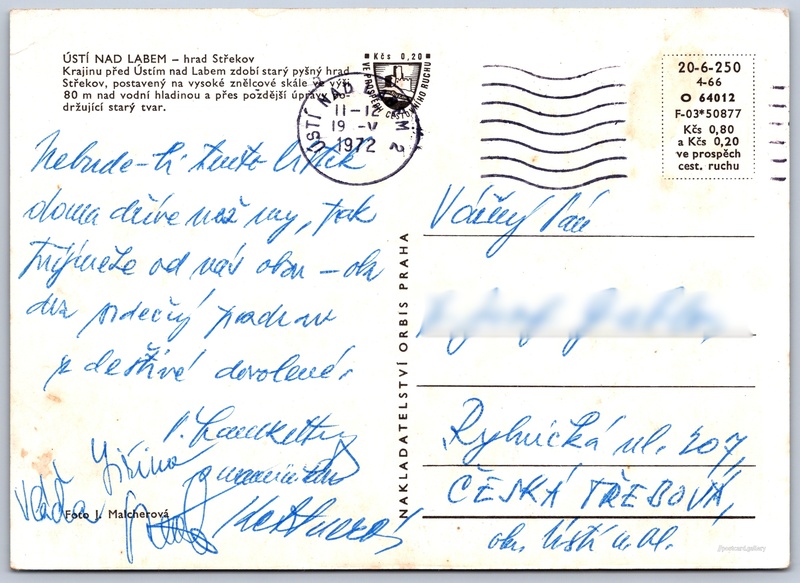 ÚSTÍ NAD LABEM – hrad Střekov
Krajinu před Ústím nad Labem zdobí starý pyšný hrad
Střekov, postavený na vysoké znělcové skále ve výši
80 m nad vodní hladinou a přes pozdější úpravy
držující starý tvar.
Kčs 0,20
VE PROSPĚCH CESTOVNÍHO RUCHU
ÚSTÍ NAD M 2
11-12
19 -V
1972
20-6-250
4-66
O 64012
F-03*50877
Kčs 0,80
a Kčs 0,20
ve prospěch
cest. ruchu
Nebude-li tento lístek
doma dříve než my, pak
přijměte od nás obou – oba
dva srdečný pozdrav
z deštivé dovolené.
Jiřina
Foto J. Malcherová
NAKLADATELSTVÍ ORBIS PRAHA
Vážený Pán
Rybnická ul. 207,
ČESKÁ TŘEBOVÁ,
okr. Ústí n. Orl.
//postcard.gallery